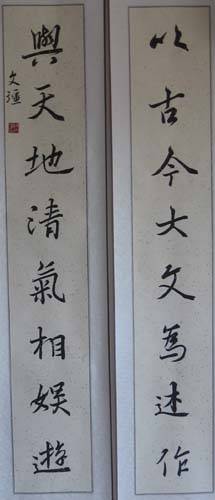 以古今大文為述作
與天地清氣相娛遊
文彊